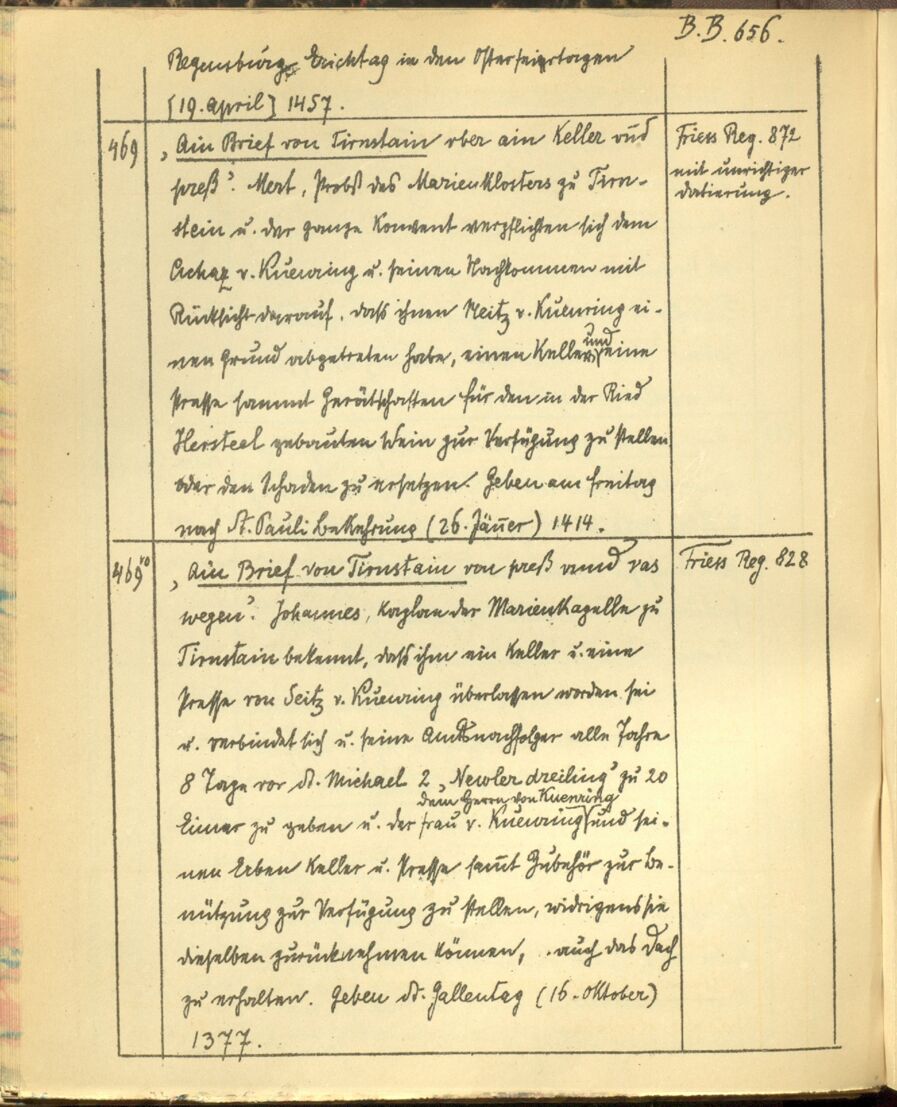 B.B. 656.
Regensburg, Erichtag in den Osterfeiertagen
[19. April] 1457.
469
„Ain Brief von Tirnstain vber ain Keller vnd
preß“. Mert, Probst des Marienklosters zu Tirn-
stein u. der ganze Konvent verpflichten sich dem
Achaz v. Kuenring u. seinen Nachkommen mit
Rücksicht darauf, daß ihnen Heitz v. Kuenring ei-
nen Grund abgetreten habe, einen Keller und eine
Presse sammt Gerätschaften für den in der Ried
Hersteel gebauten Wein zur Verfügung zu stellen
oder den Schaden zu ersetzen. Geben am Freitag
nach St. Pauli Bekehrung (26. Jänner) 1414.
Friess Reg. 872
mit unrichtiger
Datierung.
469
„Ain Brief von Tirnstain von preß vnnd vas
wegen“. Johannes, Kaplan der Marienkapelle zu
Tirnstain bekennt, daß ihm ein Keller u. eine
Presse von Seitz v. Kuenring überlassen worden sei
u. verbindet sich u. seine Amtsnachfolger alle Jahre
8 Tage vor St. Michael 2 „Newler dreiling“ zu 20
dem Herrn von Kuenring
Eimer zu geben u. der Frau v. Kuenring und sei-
nen Erben Keller u. Presse samt Zubehör zur Be-
nützung zur Verfügung zu stellen, widrigens sie
dieselben zurücknehmen können, auch das Dach
zu erhalten. Geben St. Gallentag (16. Oktober)
1377.
Friess Reg. 828